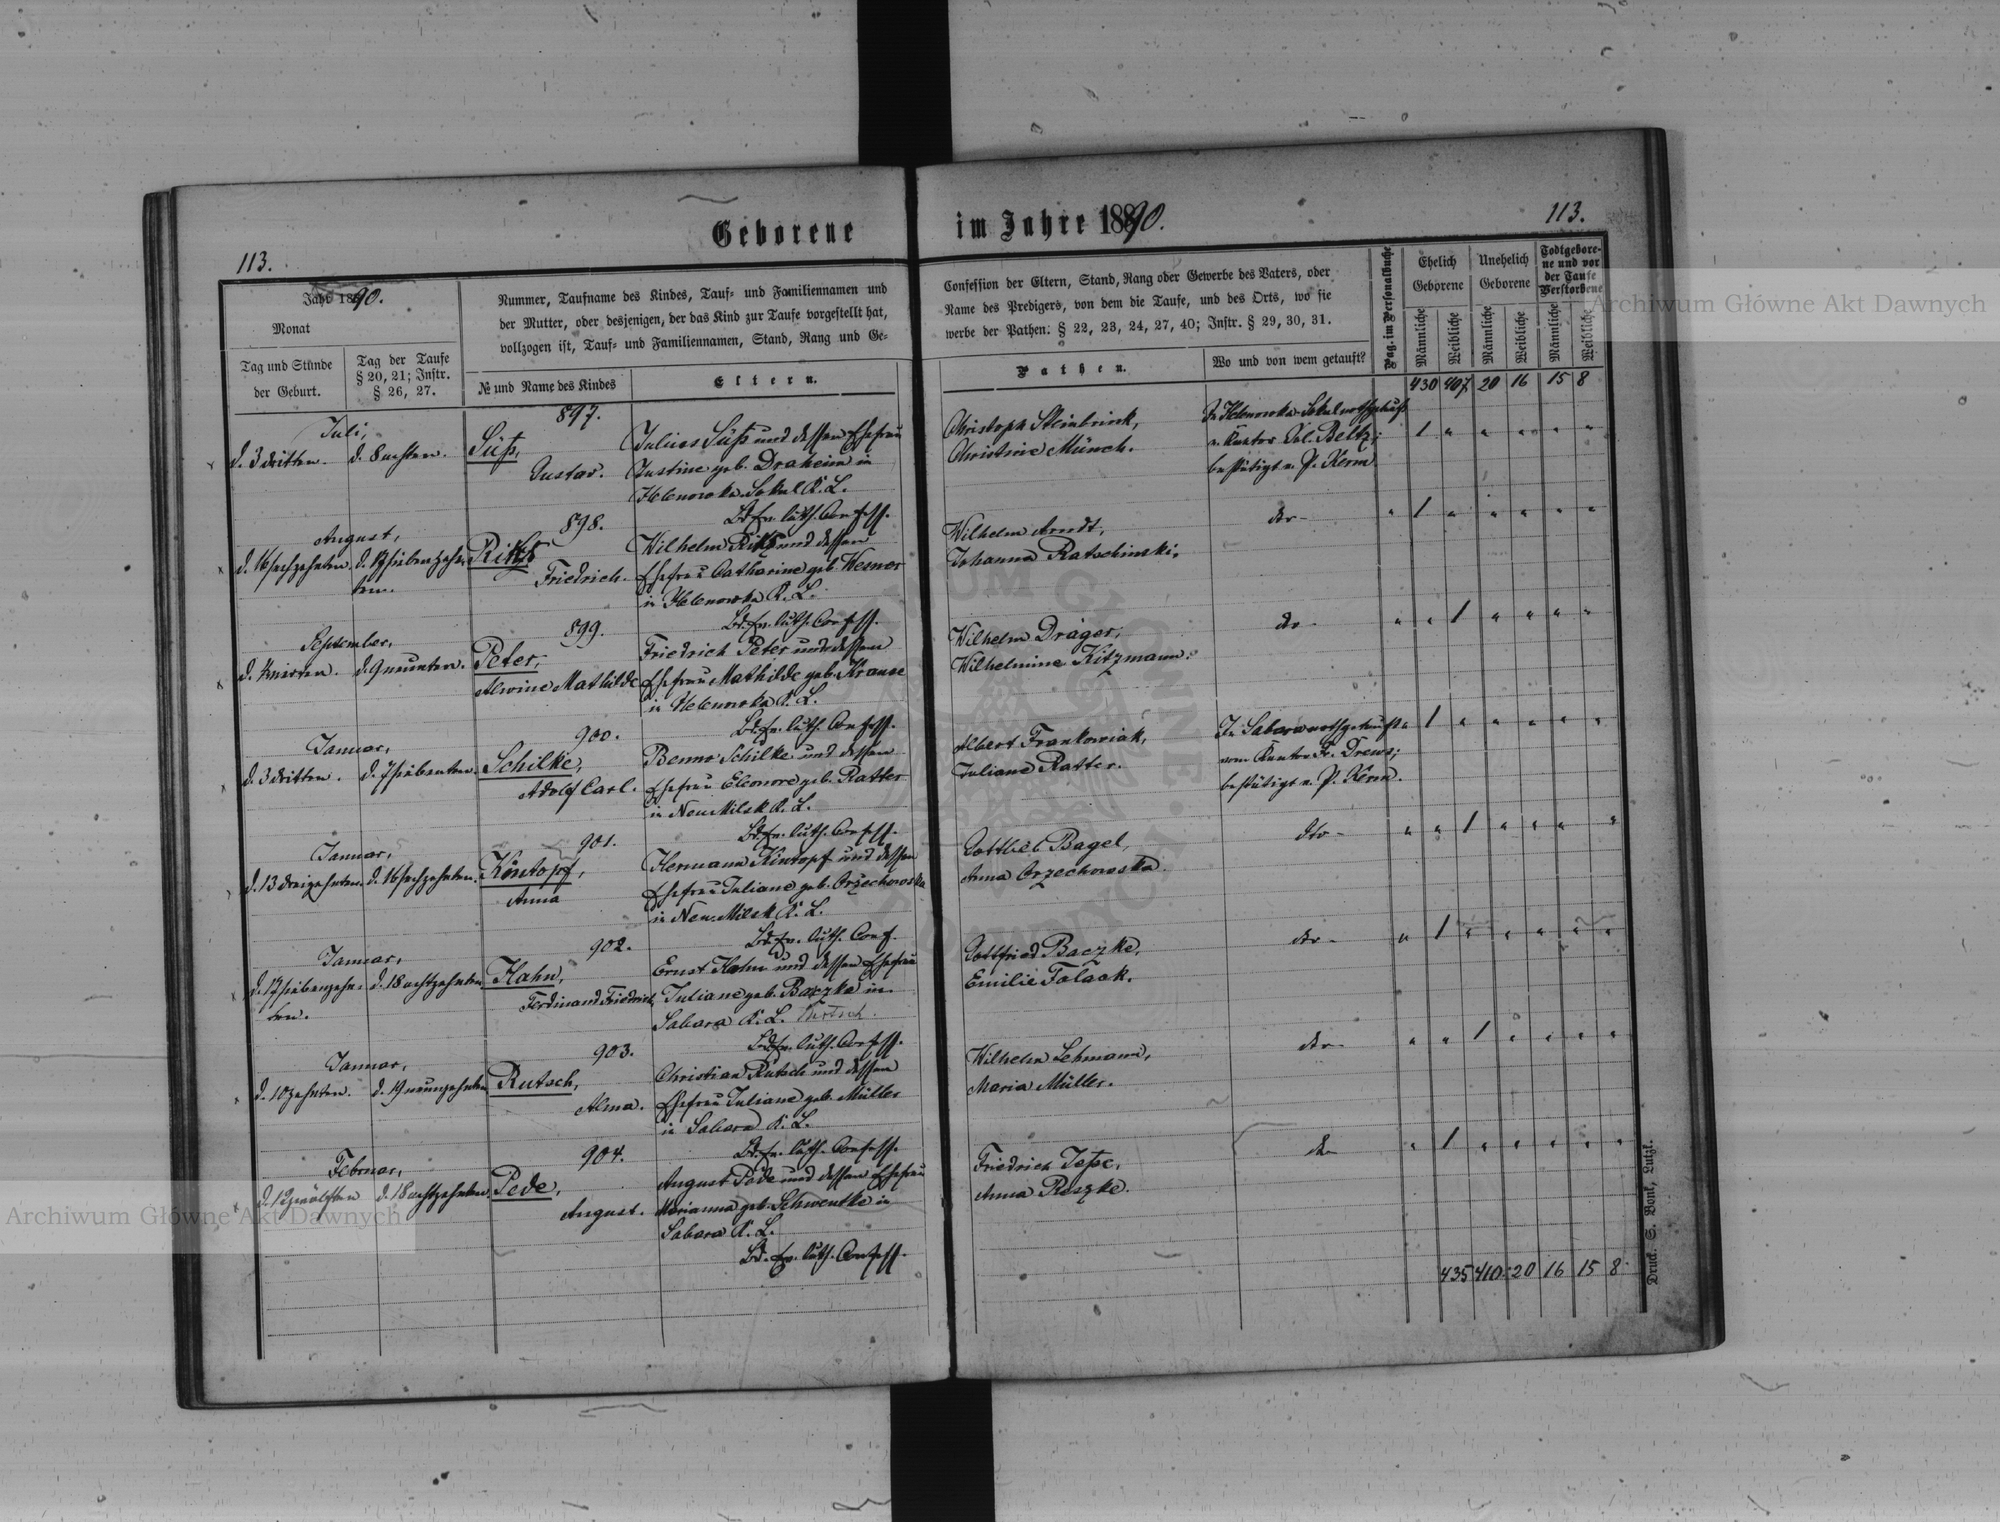 Geborene im Jahre 1890.
113.
113.
Jahr 1890.
Monat
Tag und Stunde
der Geburt.
Tag der Taufe
§ 20, 21; Instr.
§ 26, 27.
Nummer, Taufname des Kindes, Tauf- und Familiennamen und
der Mutter, oder desjenigen, der das Kind zur Taufe vorgestellt hat,
vollzogen ist, Tauf- und Familiennamen, Stand, Rang und Ge-
№ und Name des Kindes
Eltern.
Confession der Eltern, Stand, Rang oder Gewerbe des Vaters, oder
Name des Predigers, von dem die Taufe, und des Orts, wo sie
werbe der Pathen. § 22, 23, 24, 27, 40; Instr. § 29, 30, 31.
Pathen.
Wo und von wem getauft?
Pag. im Personalbuche
Ehelich
Geborene
Unehelich
Geborene
Todtgebore-
ne und vor
der Taufe
Verstorbene
Männliche
Weibliche
Männliche
Weibliche
Männliche
Weibliche
430 407 20 16 15 8
Juli,
d. 3 dritten. d. 8 achten.
897.
Süß,
Gustav.
Julius Süß und dessen Ehefrau
Justine geb. Draheim in
Helenowka-Sokul K. L.
Bd. Ev. luth. Confess.
Christoph Steinbrink,
Christine Münch.
In Helenowka-Sokul nothgetauft
v. Kantor Jul. Beltz;
bestätigt v. P. Kerm
August,
d. 16 sechzehnten d. 17 siebenzehn-
ten.
898.
Ritz
Friedrich.
Wilhelm Ritz und dessen
Ehefrau Catharine geb. Wesner
in Helenowka K. L.
Bd. Ev. luth. Confess.
Wilhelm Arndt,
Johanna Ratschinski.
dto-
September,
d. 4 vierten. d. 9 neunten.
899.
Peter,
Alwine Mathilde
Friedrich Peter und dessen
Ehefrau Mathilde geb. Krause
in Helenowka K. L.
Bd. Ev. luth. Confess.
Wilhelm Dräger,
Wilhelmine Kitzmann.
dto-
Januar,
d. 3 dritten. d. 7 siebenten.
900.
Schilke,
Adolf Carl.
Benno Schilke und dessen
Ehefrau Eleonore geb. Ratter
in Neu Milsk K. L.
Bd. Ev. luth. Confess.
Albert Frankowiak,
Juliane Ratter.
In Sabara nothgetauft
vom Kantor Fr. Drews;
bestätigt v. P. Kerm.
Januar,
d. 13 dreizehnten. d. 16 sechzehnten.
901.
Kintopf,
Anna
Hermann Kintopf und dessen
Ehefrau Juliane geb. Orzechowska
in Neu-Milsk K. L.
Bd. Ev. luth. Conf.
Gottlieb Bagel,
Anna Orzechowska.
dto-
Januar,
d. 17 siebenzehn- d. 18 achtzehnten
ten.
902.
Hahn,
Ferdinand Friedrich,
Ernst Hahn und dessen Ehefrau
Juliane geb. Baczke in
Sabara K. L.
Bd. Ev. luth. Confess.
Gottfried Baczke,
Emilie Falack.
dto-
Januar,
d. 10 zehnten. d. 19 neunzehnten
903.
Rutsch,
Alma.
Christian Rutsch und dessen
Ehefrau Juliane geb. Müller
in Sabara K. L.
Bd. Ev. luth. Confess.
Wilhelm Lehmann,
Maria Müller.
dto-
Februar,
d. 12 zwölften d. 18 achtzehnten
904.
Pede,
August.
August Pede und dessen Ehefrau
Marianna geb. Schwentke in
Sabara K. L.
Bd. Ev. luth. Confess.
Friedrich Jeße,
Anna Reszke.
dto
435 410 20 16 15 8
Druck. S. Bonk, Lutzk.
Archiwum Główne Akt Dawnych
Archiwum Główne Akt Dawnych